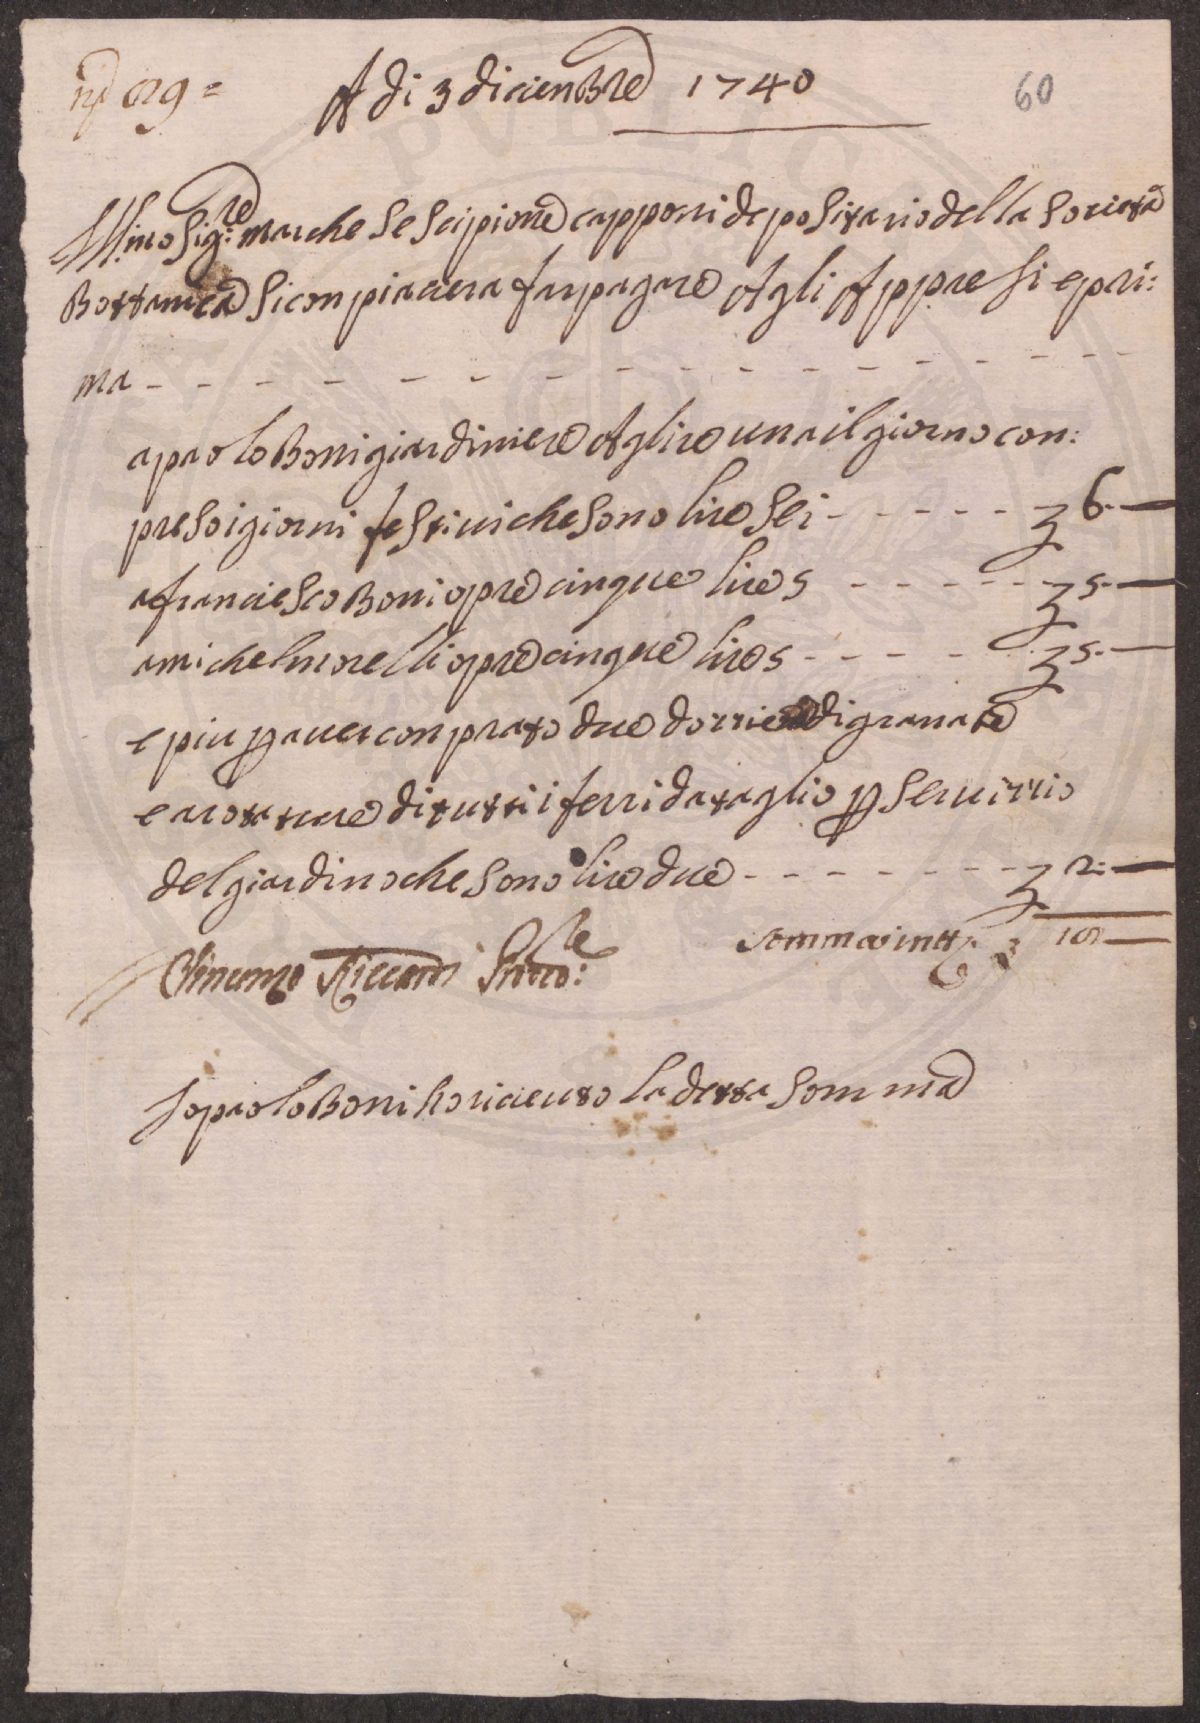 nº 29 =
A di 3 diciembre 1740
60
Illmo Sigre: marchese Scipione capponi depositario della Società
Bottanica si conpiacera far pagare Agli Appresi e pri:
ma - - - - - - - - - - - - - -
a paolo Boni giardiniere A lire una il giorno con:
preso i giorni festiui che sono lire sei - - - - - 6. —
a franciesco Boni opre cinque lire 5 - - - - - 5. —
a michel morelli opre cinque lire 5 - - - - 5. —
e piu p auer conprato due dozzine di granate
e arotature di tutti i ferri da taglio p seruizzio
del giardino che sono lire due - - - - - - - - 2: —
Somma in tt 18 —
Vincenzo Riccardi
Io paolo Boni ho riceuto la detta somma